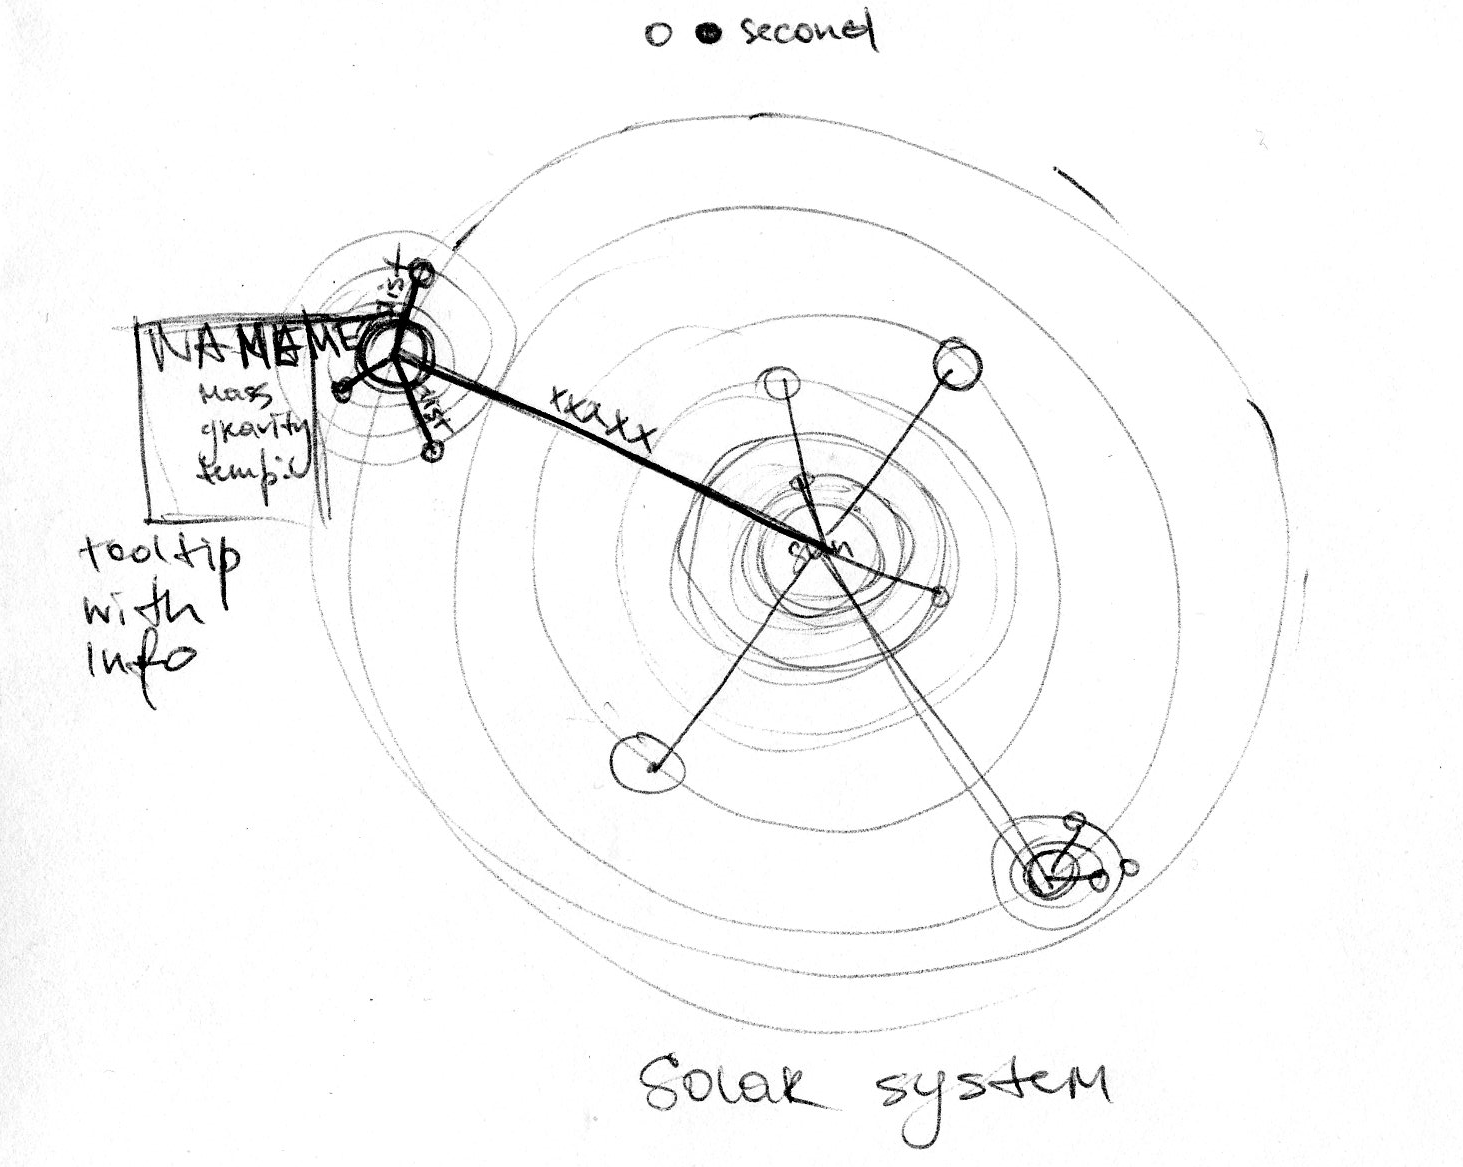 second
dist
NAMEME
mass
gravity
temp.c
dist
xxxxx
sun
tooltip
with
info
Solar system